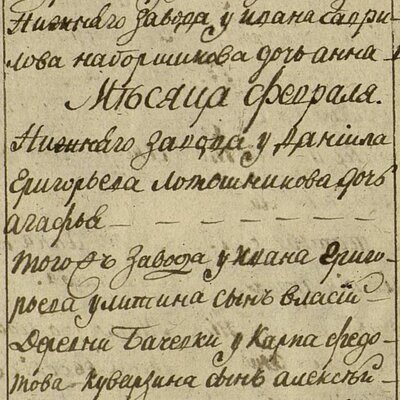 Нижняго завода у ивана гаври-
лова наборщикова дочь анна
Мѣсяца февраля.
Нижняго завода у данiила
григорьева лотошникова дочь
агафья
того ж завода у ивана григо-
рьева улитина сынъ власiй
деревни Бачевки у карпа федо-
това куверзина сынъ алексѣй